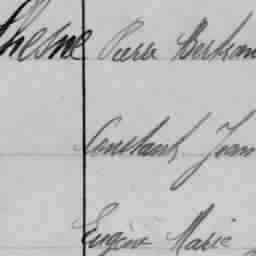 Chesne Pierre Bertran
Constant Jean
Eugène Marie